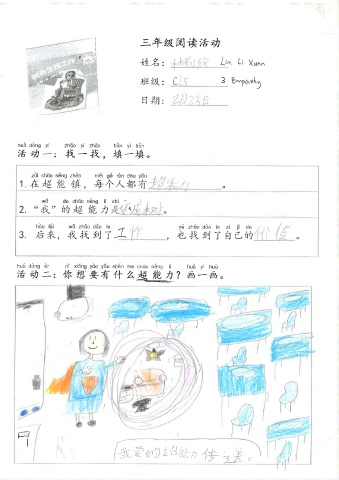 三年级阅读活动
姓名: Lu Li Xuan
班级: C15 3 Empathy
日期:
huó dòng yī zhǎo yī zhǎo tián yī tián
活动一：找一找，填一填。
zài chāo néng zhèn měi gè rén dōu yǒu
1. 在超能镇，每个人都有超能力。
wǒ de chāo néng lì shì
2. “我”的超能力是变成树。
hòu lái wǒ zhǎo dào le yě zhǎo dào le zì jǐ de
3. 后来，我找到了工作，也找到了自己的价值。
huó dòng èr nǐ xiǎng yào yǒu shén me chāo néng lì huà yī huà
活动二：你想要有什么超能力？画一画。
我要的超能力